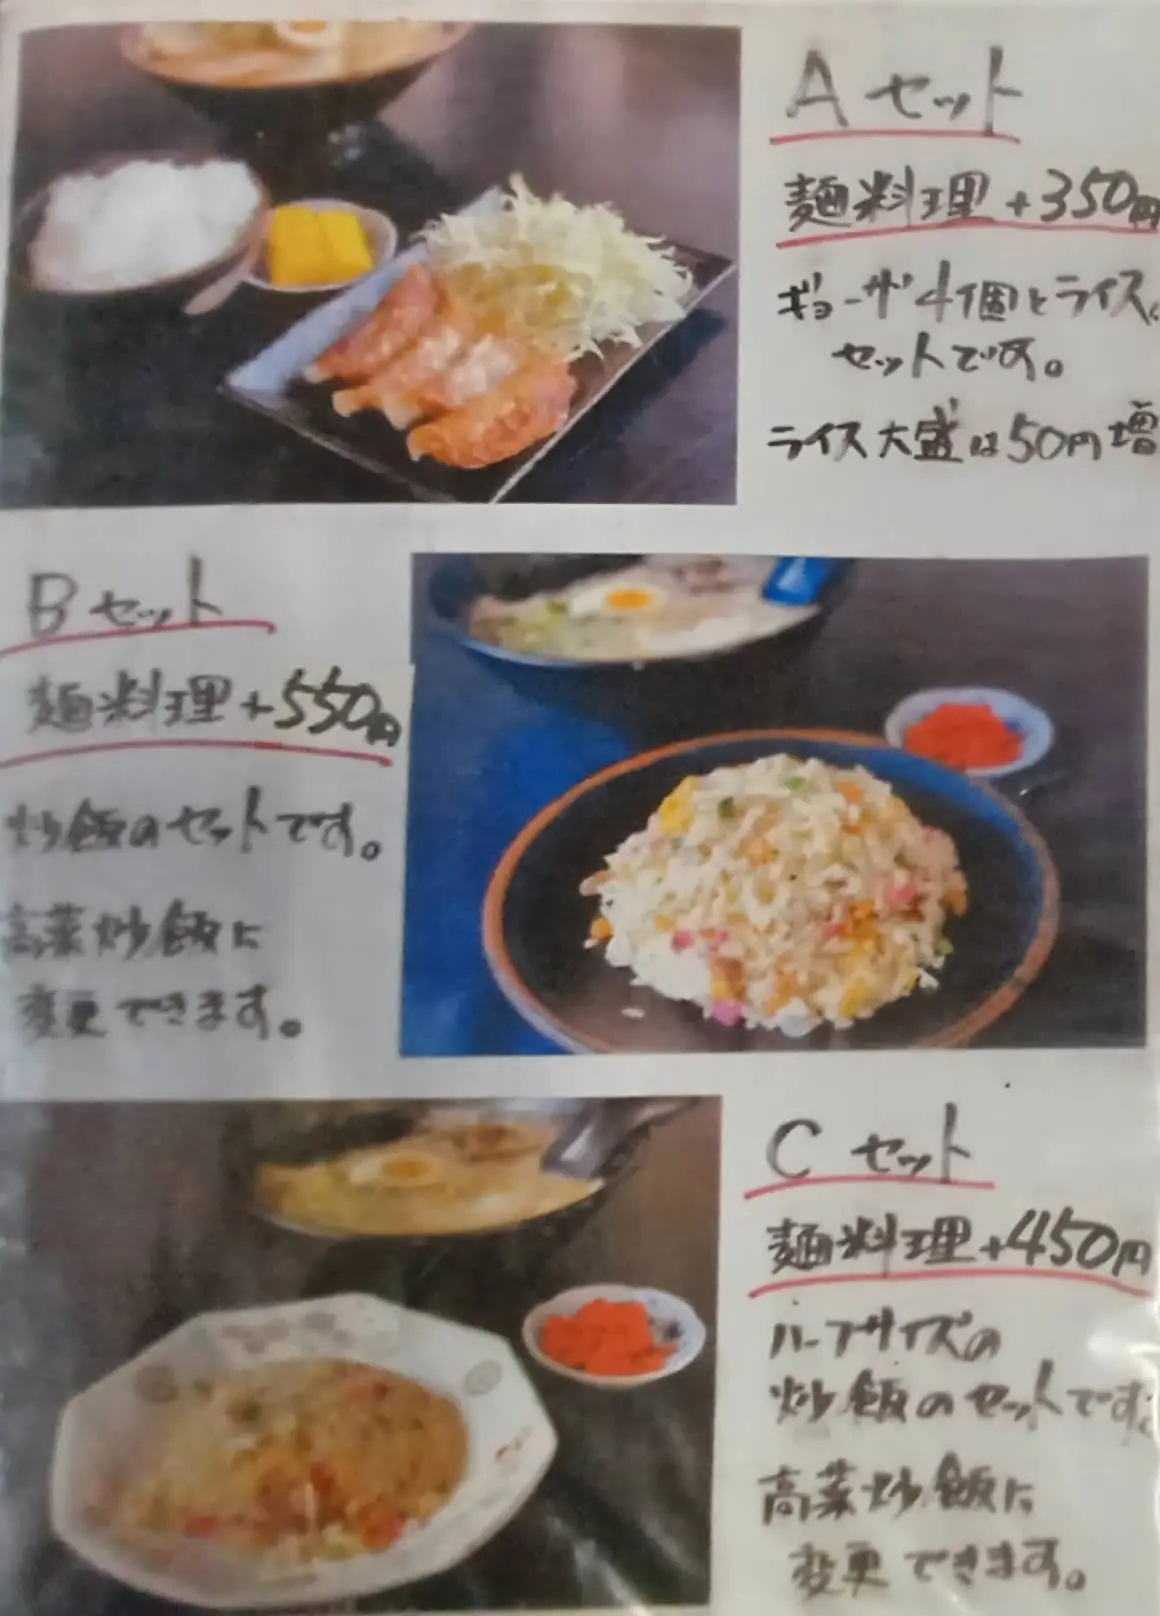 Aセット
麺料理+350円
ギョーザ4個とライス
セットです。
ライス大盛は50円増
Bセット
麺料理+550円
炒飯のセットです。
高菜炒飯に
変更できます。
Cセット
麺料理+450円
ハーフサイズの
炒飯のセットです。
高菜炒飯に
変更できます。